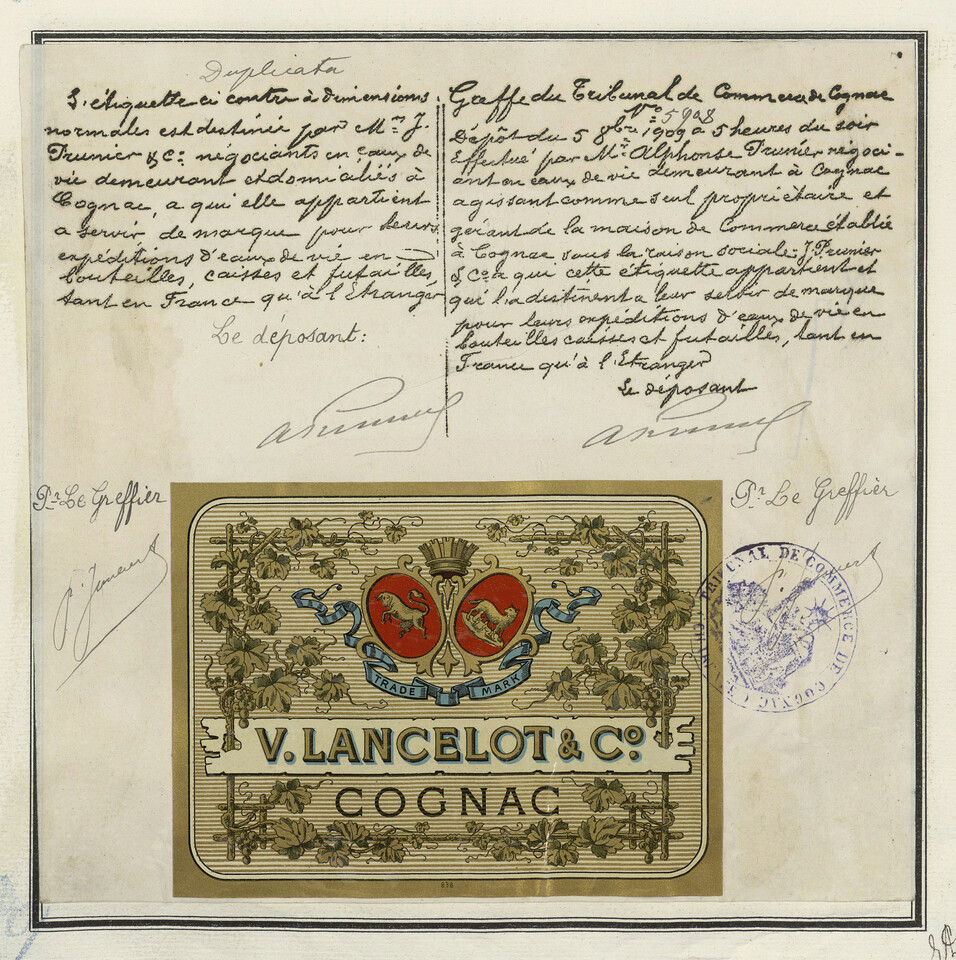 Duplicata
L'étiquette ci contre à dimensions
normales est destinée par Mrs J.
Prunier & Co négociants en eaux de
vie demeurant et domiciliés à
Cognac, a qui elle appartient
a servir de marque pour leurs
expéditions d'eaux de vie en
bouteilles, caisses et futailles
tant en France qu'à l'Etranger
Le déposant:
Greffe du Tribunal de Commerce de Cognac
No 5908
Dépôt du 5 8bre 1909 à 5 heures du soir
Effectué par Mr Alphonse Prunier négoci-
ant en eaux de vie demeurant à Cognac
agissant comme seul propriétaire et
gérant de la maison de Commerce établie
à Cognac sous la raison sociale: J. Prunier
& Co a qui cette étiquette appartient et
qui la destinent a leur servir de marque
pour leurs expéditions d'eaux de vie en
bouteilles caisses et futailles, tant en
France qu'à l'Etranger
Le déposant
APrunier
APrunier
Pr Le Greffier
Pr Le Greffier
TRIBUNAL DE COMMERCE DE COGNAC
TRADE MARK
V. LANCELOT & Co.
COGNAC
636